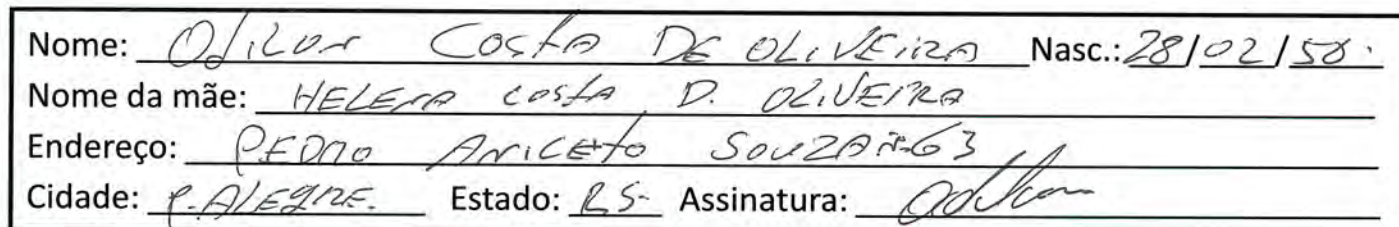 Nome: Odilon Costa DE OLIVEIRA Nasc.: 28/02/58.
Nome da mãe: HELENA COSTA D. OLIVEIRA
Endereço: PEDRO ANICETO SOUZA Nº 63
Cidade: P. ALEGRE. Estado: RS- Assinatura: Odilon